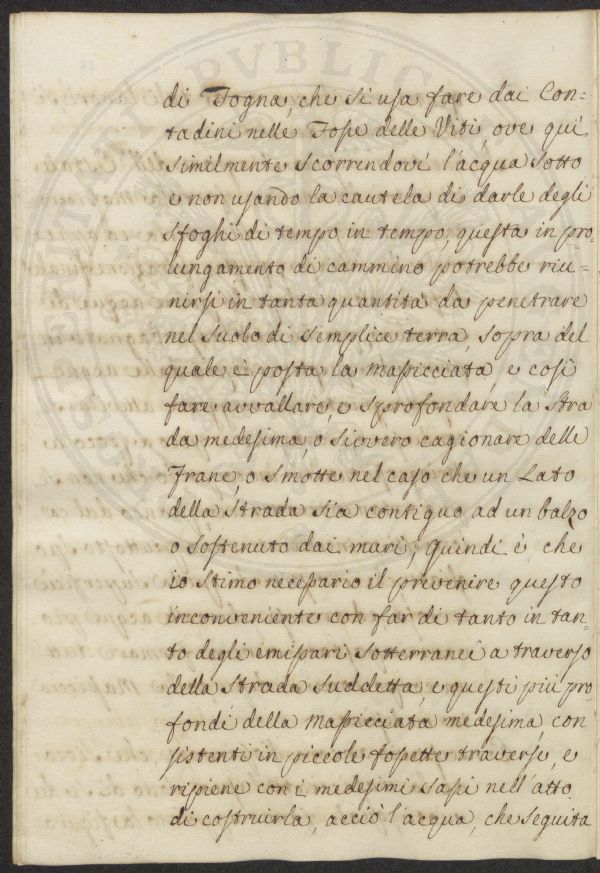 di Fogna, che si usa fare dai Con=
tadini nelle Fosse delle Viti, ove qui
similmente scorrendovi l'acqua sotto
e non usando la cautela di darle degli
sfoghi di tempo in tempo, questa in pro=
lungamento di cammino potrebbe riu=
nirsi in tanta quantità da penetrare
nel suolo di semplice terra, sopra del
quale è posta la massicciata, e così
fare avvallare, e sprofondare la Stra
da medesima, o sivvero cagionare delle
Frane, o Smotte nel caso che un Lato
della Strada sia contiguo ad un balzo
o sostenuto dai muri; quindi è, che
io stimo necessario il prevenire questo
inconveniente con far di tanto in tan=
to degli emissari sotterranei a traverso
della Strada suddetta, e questi più pro=
fondi della massicciata medesima, con
sistenti in piccole fossette traverse, e
ripiene con i medesimi sassi nell'atto
di costruirla, acciò l'acqua, che seguita